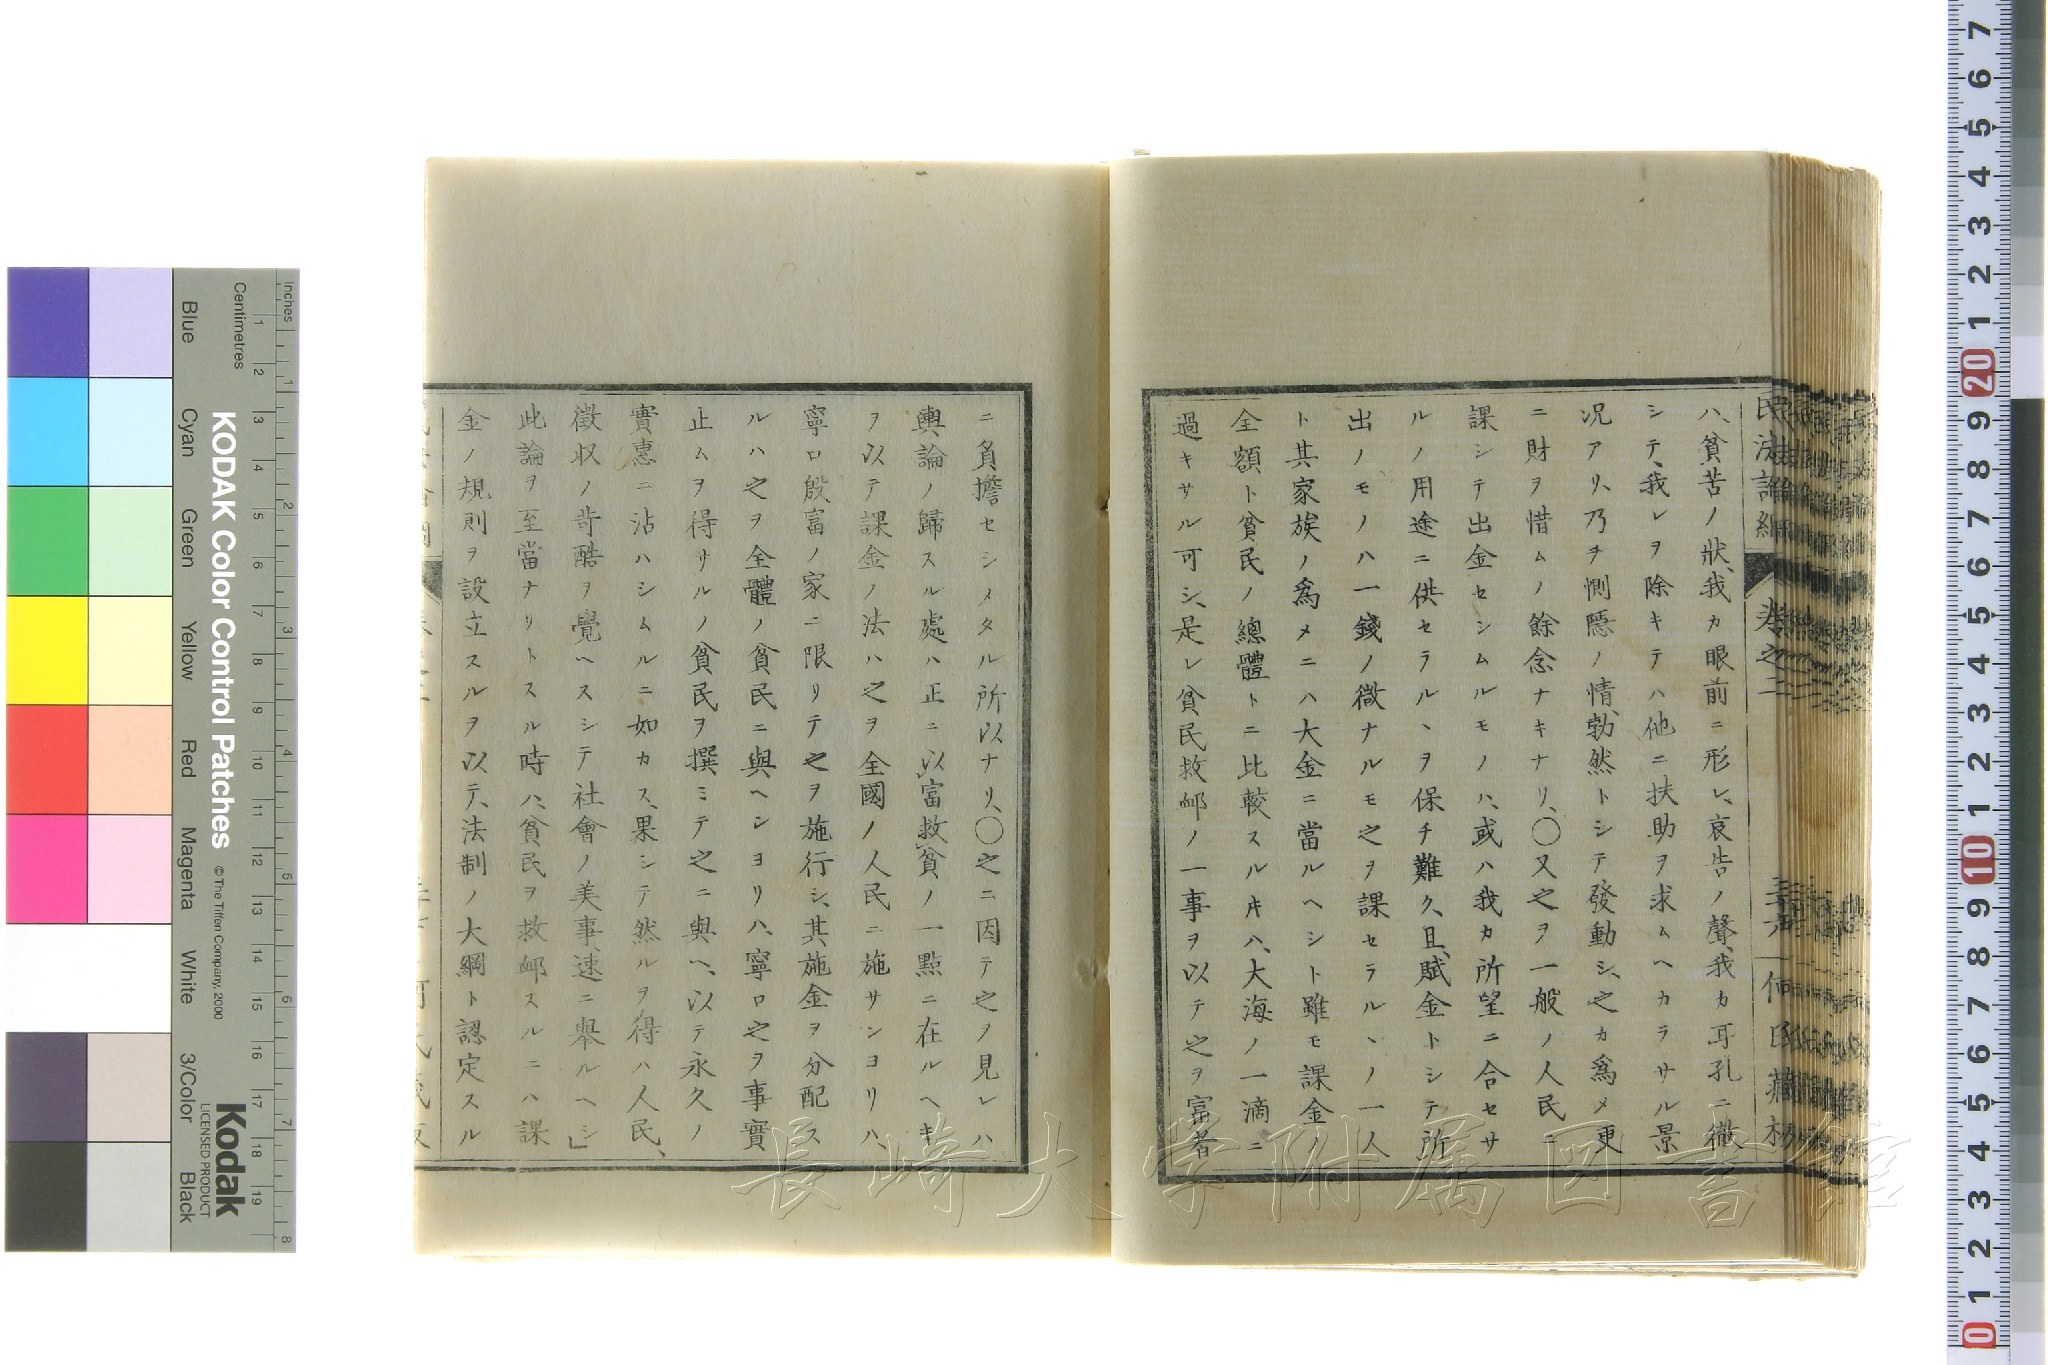 ハ、貧苦ノ狀、我カ眼前ニ形レ、哀告ノ聲、我カ耳孔ニ徹
シテ、我レヲ除キテハ他ニ扶助ヲ求ムヘカラサル景
况アリ、乃チ惻隱ノ情、勃然トシテ發動シ、之カ爲メ更
ニ財ヲ惜ムノ餘念ナキナリ、〇又之ヲ一般ノ人民ニ
課シテ出金セシムルモノハ、或ハ我カ所望ニ合セサ
ルノ用途ニ供セラルヽヲ保チ難ク、且、賦金トシテ所
出ノモノハ一錢ノ微ナルモ之ヲ課セラルヽノ一人
ト其家族ノ爲メニハ大金ニ當ルヘシト雖モ課金ノ
全額ト貧民ノ總體トニ比較スルキハ、大海ノ一滴ニ
過キサル可シ、是レ貧民救䘏ノ一事ヲ以テ之ヲ富者
ニ負擔セシメタル所以ナリ、〇之ニ因テ之ヲ見レハ
輿論ノ歸スル處ハ正ニ以富救貧ノ一點ニ在ルヘキ
ヲ以テ課金ノ法ハ之ヲ全國ノ人民ニ施サンヨリハ
寧ロ殷富ノ家ニ限リテ之ヲ施行シ、其施金ヲ分配ス
ルハ之ヲ全體ノ貧民ニ與ヘンヨリハ、寧ロ之ヲ事實
止ムヲ得サルノ貧民ヲ撰ミテ之ニ與ヘ、以テ永久ノ
實惠ニ沾ハシムルニ如カス、果シテ然ルヲ得ハ人民、
徵収ノ苛酷ヲ覺ヘスシテ社會ノ美事、速ニ舉ルヘシ」
此論ヲ至當ナリトスル時ハ、貧民ヲ救䘏スルニハ課
金ノ規則ヲ設立スルヲ以テ、法制ノ大綱ト認定スル
民法論綱 卷之二 何氏藏板
長崎大学附属図書館
KODAK Color Control Patches
© The Tiffen Company, 2000
Kodak
LICENSED PRODUCT
Inches
Centimetres
Blue
Cyan
Green
Yellow
Red
Magenta
White
3/Color
Black